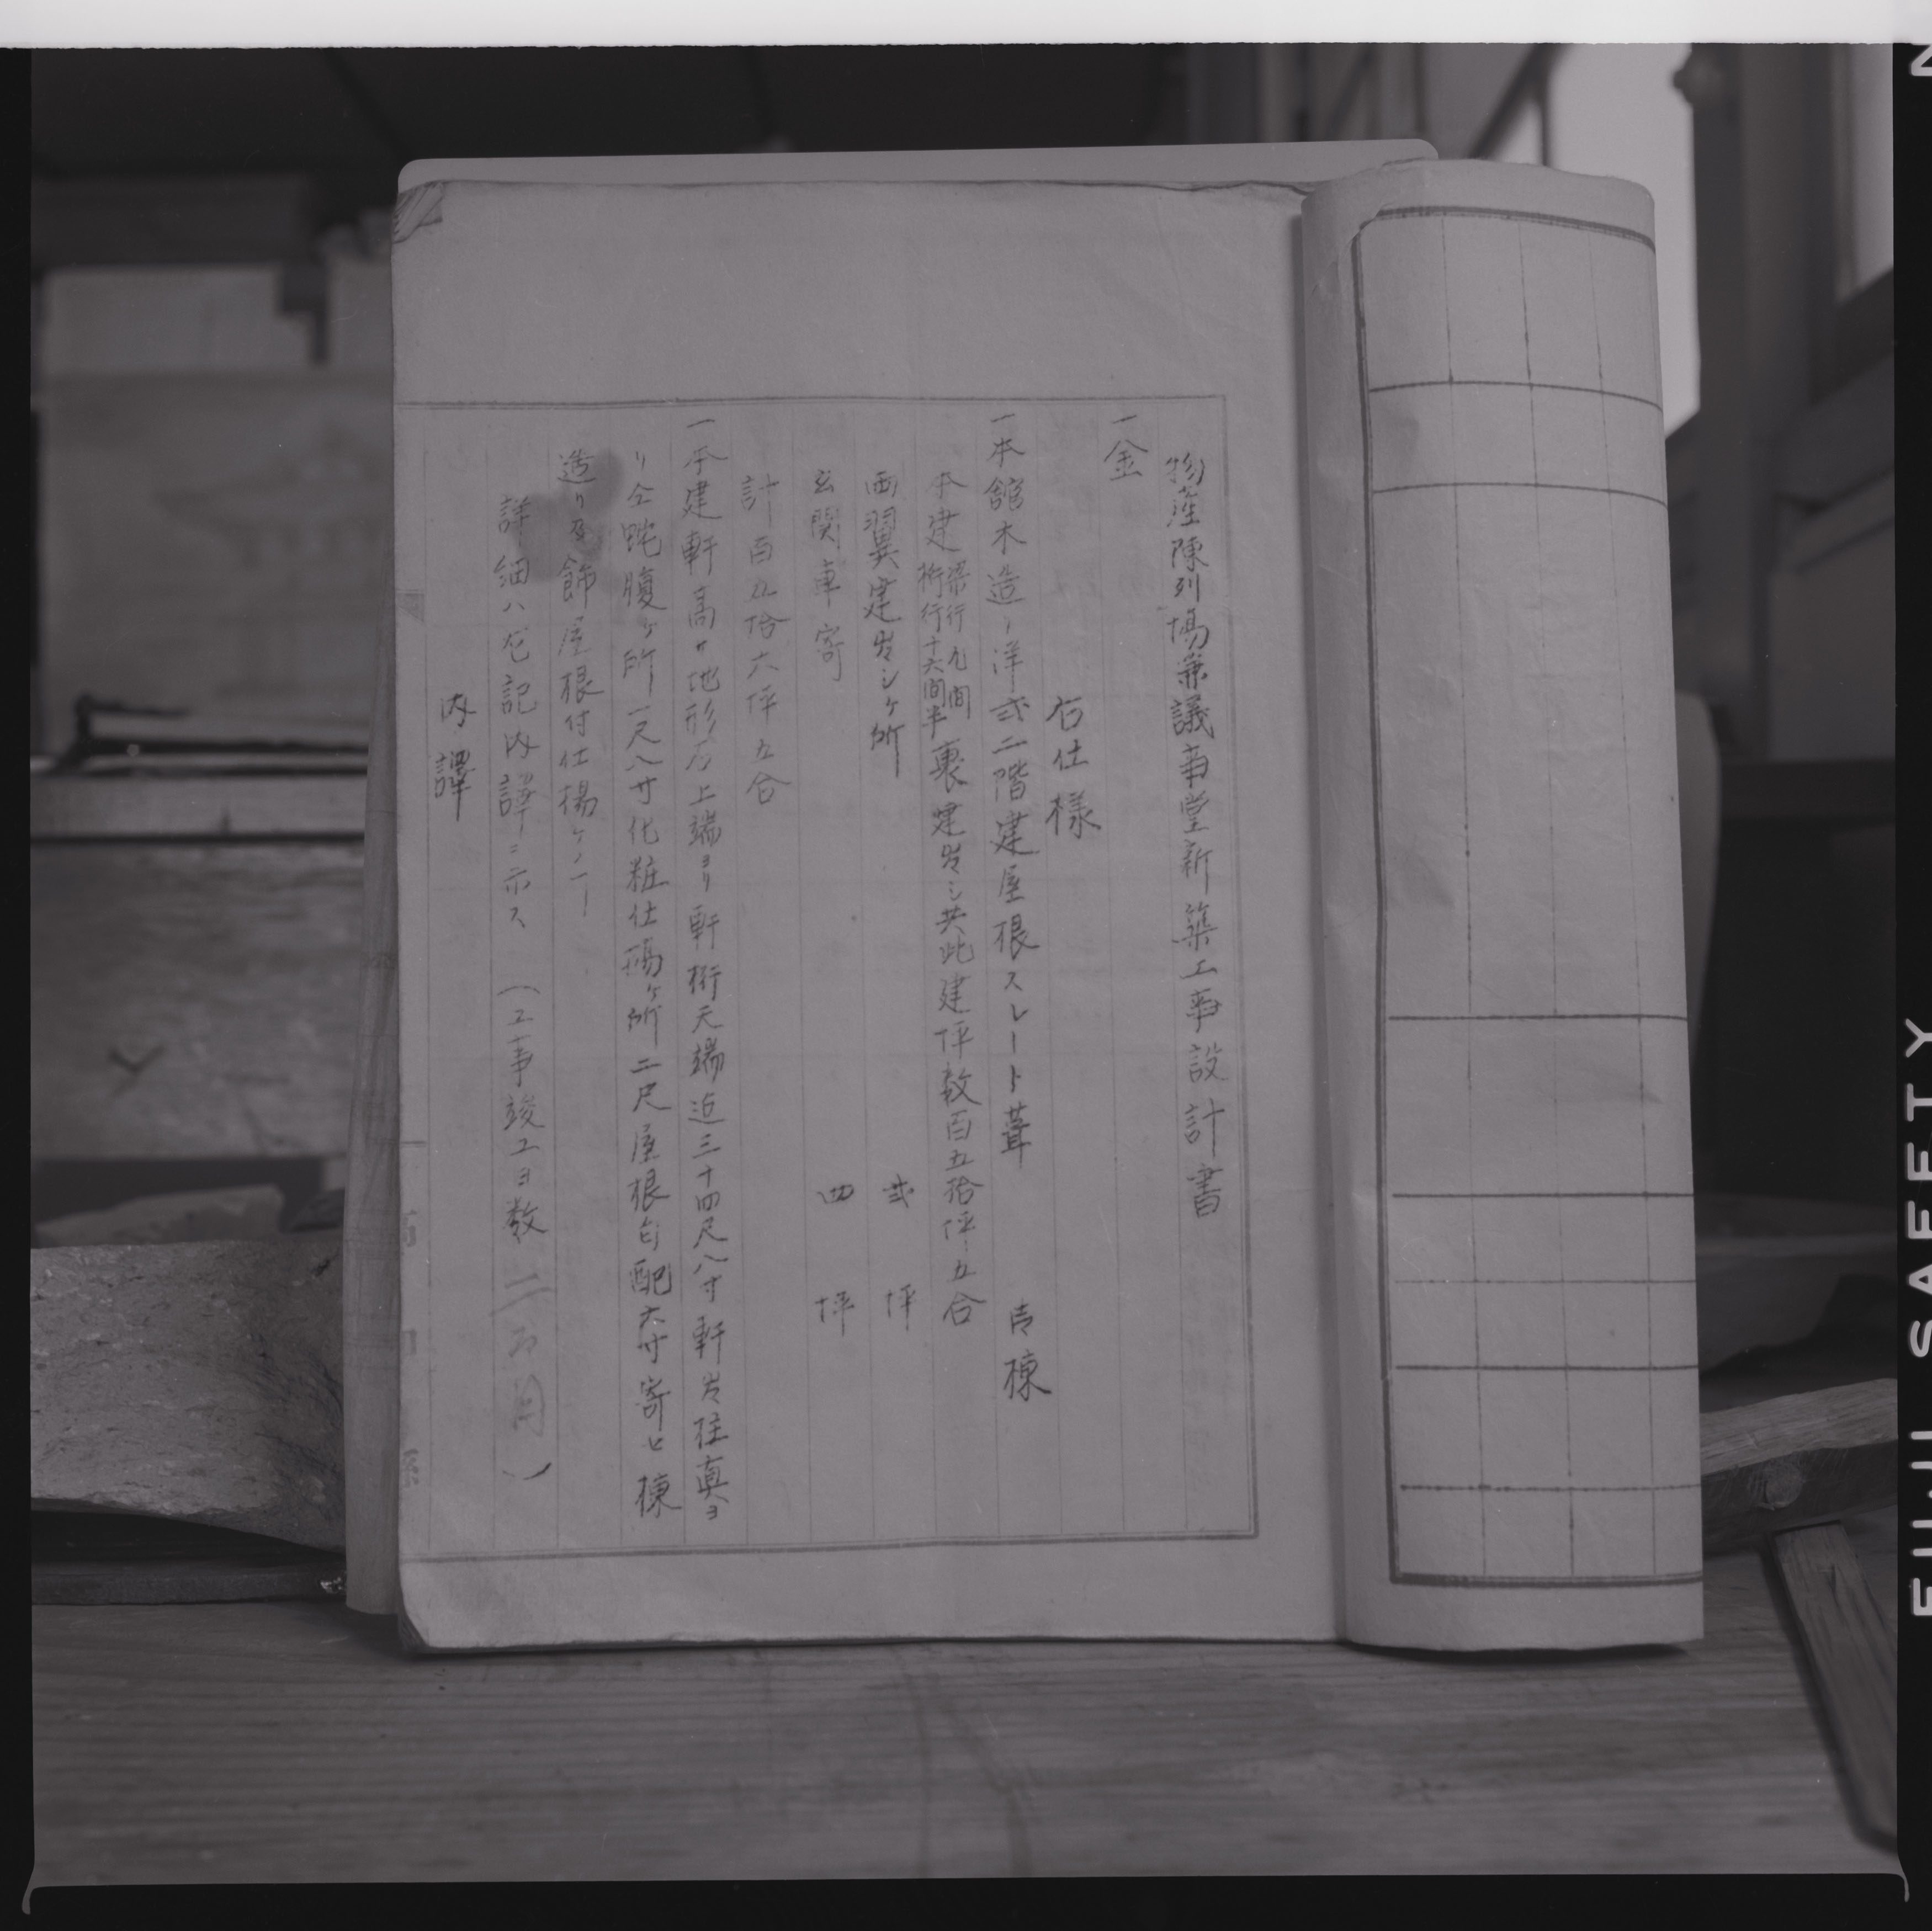 物産陳列場兼議事堂新築工事設計書
一金
右仕様
一本館木造洋式二階建屋根スレート葺 壱棟
本建 梁行九間 桁行十六間半 裏建出シ共此建坪数百五拾坪五合
両翼建出シヶ所 弐坪
玄関車寄 四坪
計百五拾六坪五合
一本建軒高サ地形石上端ヨリ軒桁天端迄三十四尺八寸軒出柱真ヨ
リ仝蛇腹ヶ所一尺八寸化粧仕揚ヶ所二尺屋根勾配六寸寄セ棟
造リ 飾屋根付仕揚ケノ
詳細ハ左記内譯ニ示ス (工事竣工日数
内譯
FUJI SAFETY